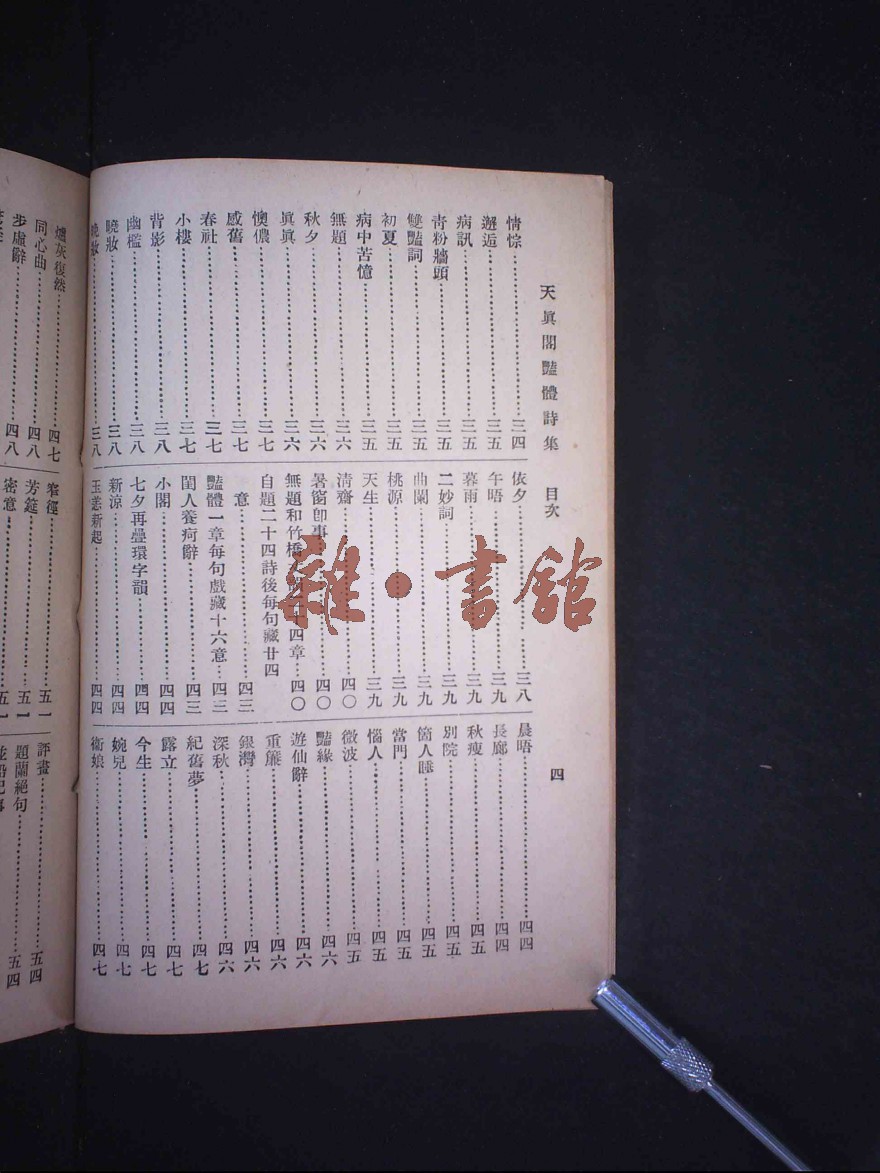 天眞閣豔體詩集 目次
四
情悰……三四
邂逅……三五
病訊……三五
靑粉牆頭……三五
雙豔詞……三五
初夏……三五
病中苦憶……三五
無題……三六
秋夕……三六
眞眞……三六
懊儂……三七
感舊……三七
春社……三七
小樓……三七
背影……三八
幽檻……三八
曉妝……三八
妝……三八
依夕……三八
午唔……三九
暮雨……三九
二妙詞……三九
曲闌……三九
桃源……三九
天生……三九
淸齋……四〇
暑窗卽事……四〇
無題和竹橋十四章……四〇
自題二十四詩後每句藏廿四
意……四三
豔體一章每句戲藏十六意……四三
閨人養疴辭……四三
小閣……四四
七夕再疊環字韻……四四
新涼……四四
玉恙新起……四四
晨唔……四四
長廊……四四
秋瘦……四五
別院……四五
箇人睡……四五
當門……四五
惱人……四五
微波……四五
豔緣……四六
遊仙辭……四六
重簾……四六
銀灣……四六
深秋……四六
紀舊夢……四七
露立……四七
今生……四七
婉兒……四七
衞娘……四七
爐灰復然……四七
同心曲……四八
步虛辭……四八
窄徑……五一
芳筵……五一
密意……五一
評畫……五四
題蘭絕句……五四
雜·書館